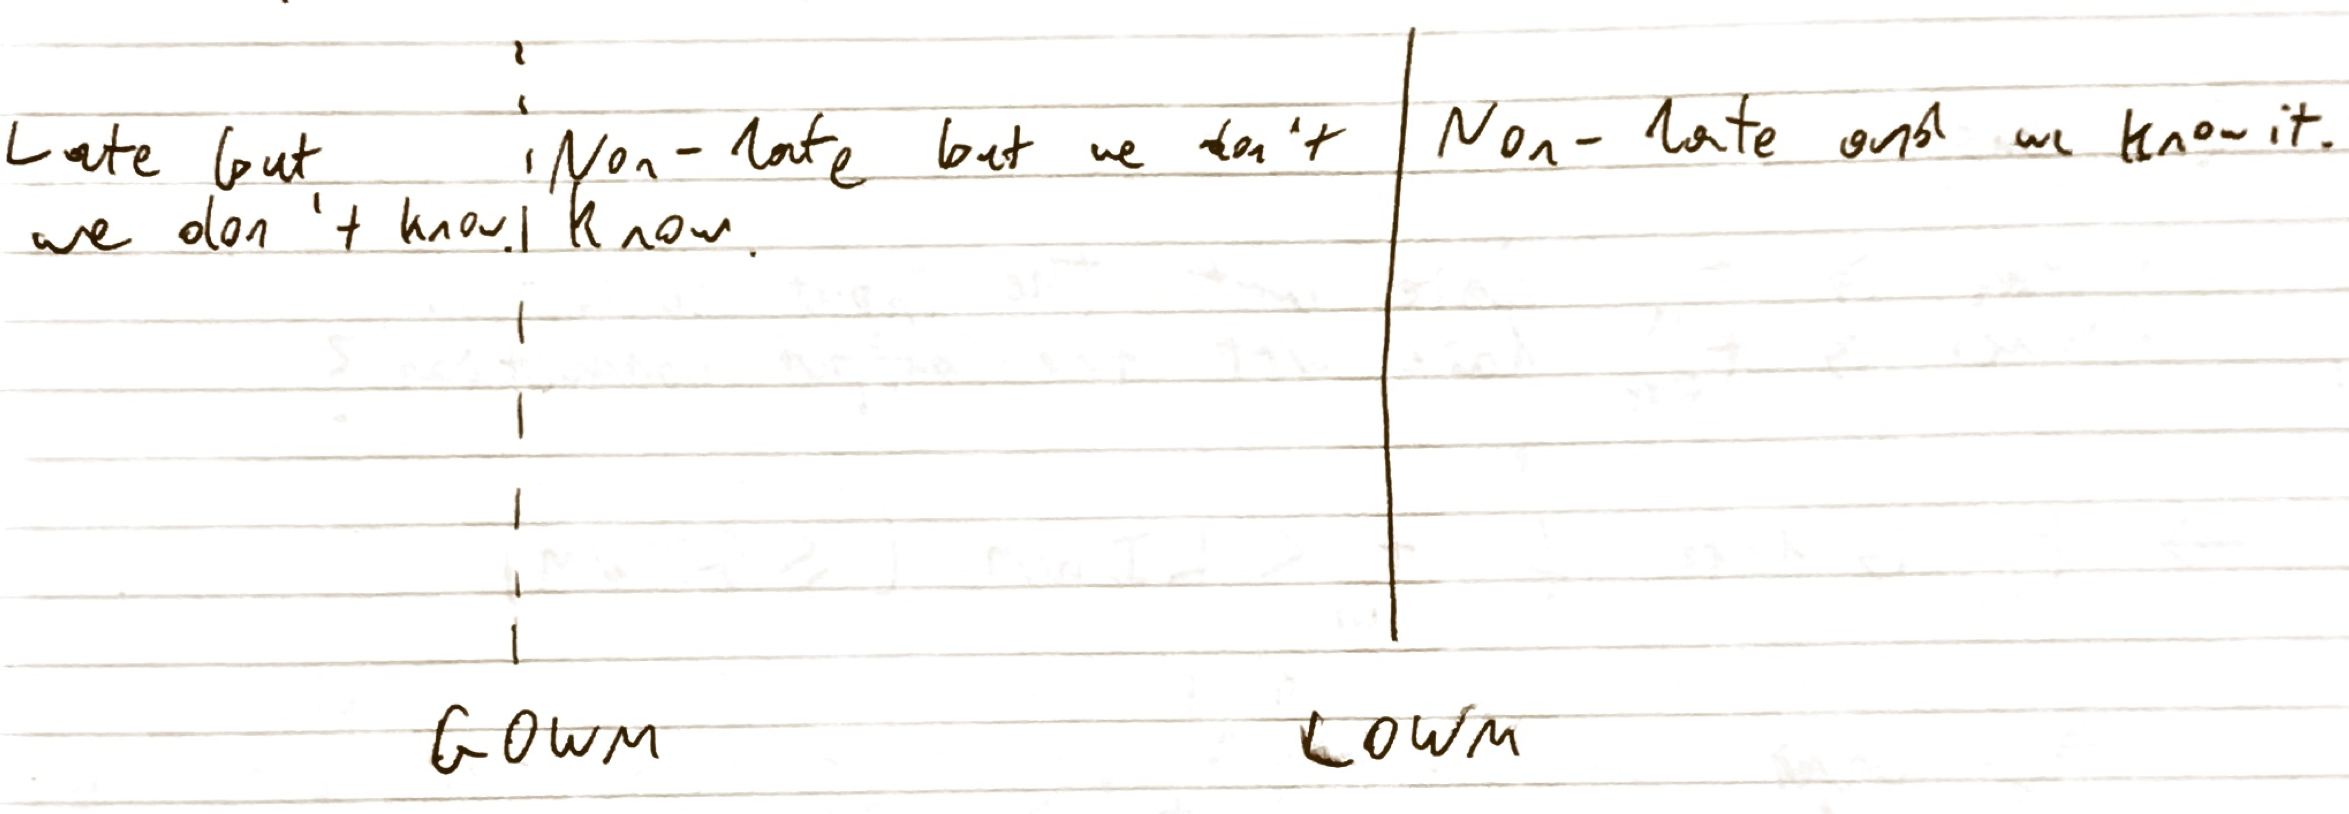 Late but
we don't know.
Non-late but we don't
know.
Non-late and we know it.
GOWM
LOWM